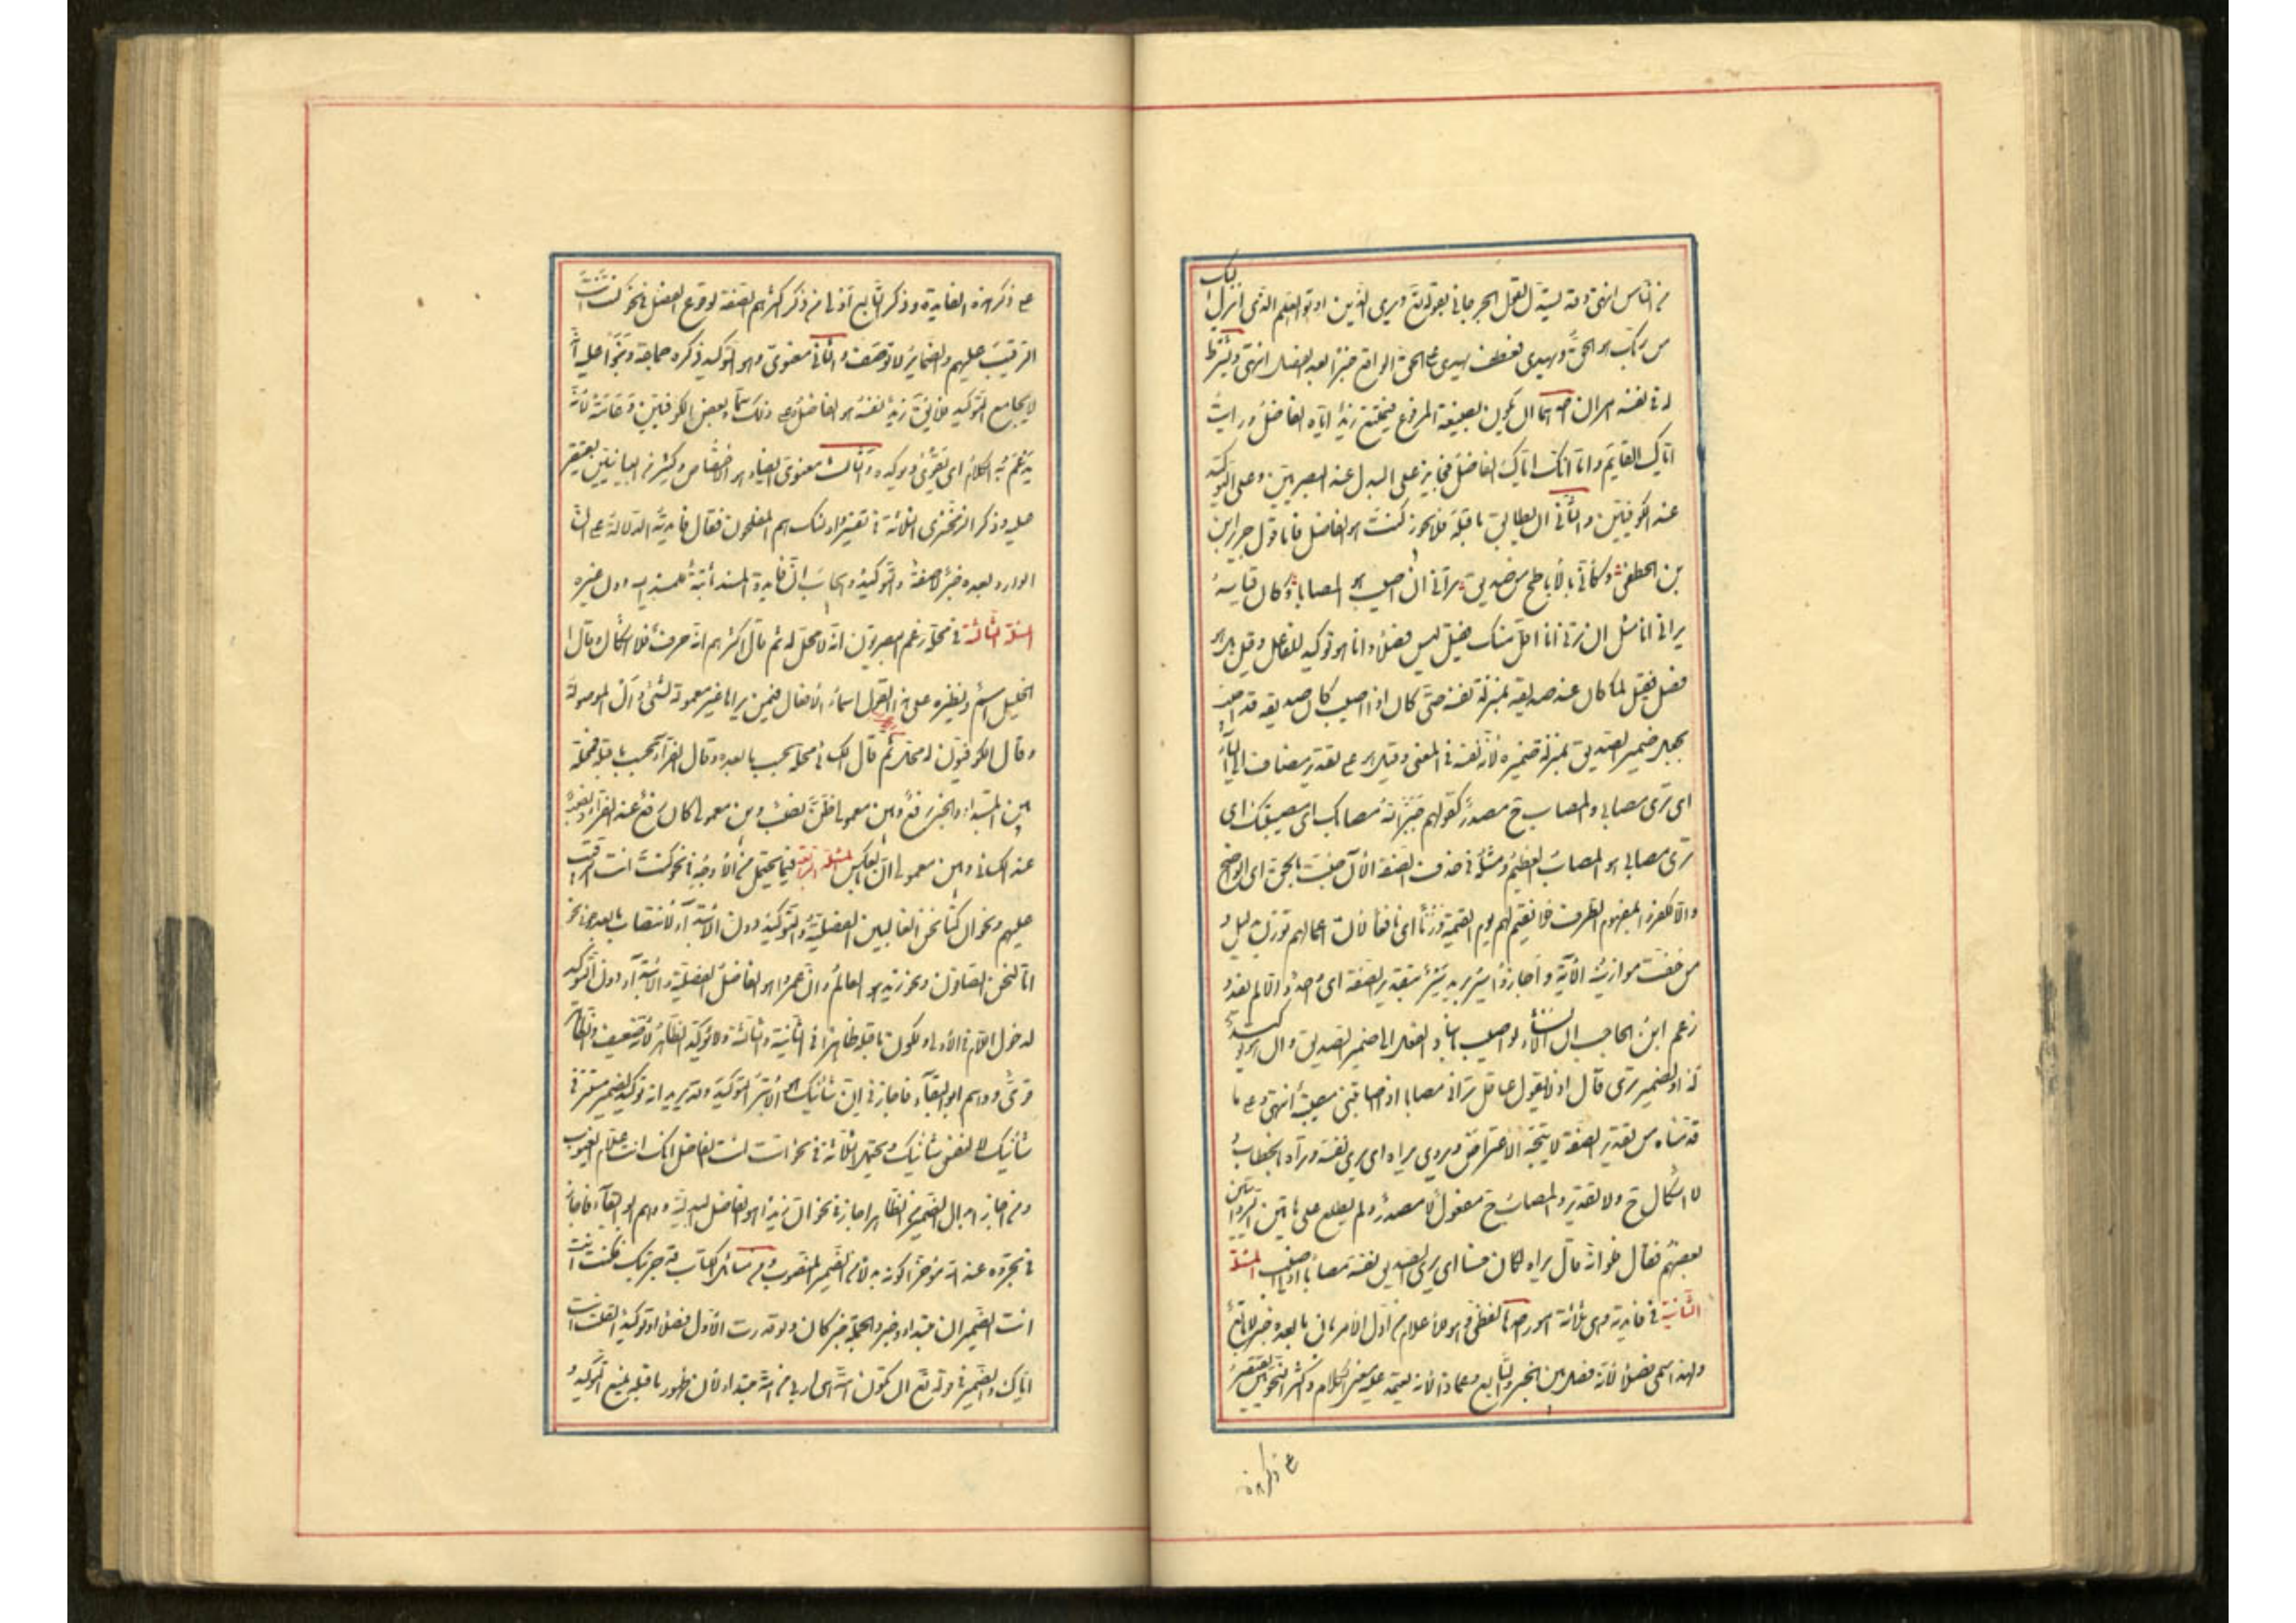 من الناس انتهى وقد يستدل لقول الجرجاني بقوله تعالى ويرى الذين اوتوا العلم الذي انزل اليك
من ربك هو الحق ويهدي فعطف يهدي على الحق الواقع خبرا بعد الفصل انتهى ويشترط
له في نفسه امران احدهما ان يكون بصيغة المرفوع فيمتنع زيد اياه الفاضل ورايت
اياك القايم واما انك اياك الفاضل فجايز على البدل عند البصريين وعلى التوكيد
عند الكوفيين والثاني ان يطابق ما قبله فلا يجوز كنت هو الفاضل فاما قول جرير ابن
بن الخطفى وكائن بالأباطح من صديق يراني ان اصيب هو المصابا وكان قياسه
يراني انا مثل ان ترني انا اقل منك فقيل ليس فصلا وانما هو توكيد للفاعل وقيل بل هو
فصل فقيل لما كان عند صديقه بمنزلة نفسه حتى كان اذا اصيب كان صديقه قد اصيب
يجعل ضمير الصديق بمنزلة ضميره لأنه نفسه في المعنى وقيل هو على تقدير مضاف الى الياء
اى يرى مصابي والمصاب ح مصدر كقولهم جبر الله مصابك اى مصيبتك اى
يرى مصابي هو المصاب العظيم ومثله في حذف الصفة الآن جئت بالحق اى الواضح
والا لكفروا بمفهوم الظرف فلا نقيم لهم يوم القيمة وزنا اى نافعا لأن اعمالهم توزن بدليل و
من خفت موازينه الآية واجازوا سير بزيد سير بتقدير الصفة اى واحد والا لم يفد و
زعم ابن الحاجب ان الانشاد لو اصيب باسناد الفعل الى ضمير الصديق وان هو توكيد
له او لضمير يرى قال اذ لا يقول عاقل يراني مصابا اذا اصابتني مصيبة انتهى وعلى ما
قدمناه من تقدير الصفة لا يتجه الاعتراض ويروى يراه اى يرى نفسه وتراه بالخطاب و
لا اشكال ح ولا تقدير والمصاب ح مفعول لا مصدر ولم يطلع على هاتين الروايتين
بعضهم فقال ولو انه قال يراه لكان حسنا اى يرى الصديق نفسه مصابا اذا اصيب المسئلة
الثانية في فايدته وهى ثلاثة امور احدها لفظي وهو الاعلام من اول الأمر بان ما بعده خبر لا تابع
ولهذا سمى فصلا لأنه فصل بين الخبر والتابع وعمادا لأنه يعتمد عليه معنى الكلام واكثر النحويين يقتصر
على ذكر هذه
على ذكر هذه الفايدة وذكر التابع اولى من ذكر اكثرهم الصفة لوقوع الفصل في نحو كنت انت
الرقيب عليهم والضماير لا توصف والثاني معنوى وهو التوكيد ذكره جماعة وبنوا عليه انه
لا يجامع التوكيد فلا يق زيد نفسه هو الفاضل وعلى ذلك سماه بعض الكوفيين دعامة لأنه
يدعم به الكلام اى يقوى ويؤكد والثالث معنوى ايضا وهو الاختصاص وكثير من البيانيين يقتصر
عليه وذكر الزمخشرى الثلاثة في تفسير اولئك هم المفلحون فقال فايدته الدلالة على ان
الوارد بعده خبر لا صفة والتوكيد وايجاب ان فايدة المسند ثابتة للمسند اليه دون غيره
المسئلة الثالثة في محله زعم البصريون انه لا محل له ثم قال اكثرهم انه حرف فلا اشكال وقال
الخليل اسم ونظيره على هذا القول اسماء الأفعال فيمن يراها غير معمولة لشىء وال الموصولة
وقال الكوفيون له محل ثم قال الكسائى محله بحسب ما بعده وقال الفراء بحسب ما قبله فمحله
بين المبتداء والخبر رفع وبين معمولى ظن نصب وبين معمولى كان رفع عند الفراء ونصب
عند الكسائى وبين معمولى ان بالعكس المسئلة الرابعة فيما يحتمل من الأوجه في نحو كنت انت الرقيب
عليهم ونحو ان كنا نحن الغالبين الفصلية والتوكيد دون الابتداء لانتصاب ما بعده وفي نحو
انا لنحن الصافون ونحو زيد هو العالم وان عمرا هو الفاضل الفصلية والابتداء دون التوكيد
لدخول اللام في الأولى ولكون ما قبله ظاهرا في الثانية والثالثة ولا يؤكد الظاهر لأنه ضعيف والظاهر
قوى ووهم ابو البقاء فاجاز في ان شانئك هو الأبتر التوكيد وقد يريد انه توكيد لضمير مستتر في
شانئك لا لنفس شانئك ويحتمل الثلاثة في نحو انت انت الفاضل انك انت علام الغيوب
ومن اجاز ابدال الضمير من الظاهر اجاز في نحو ان زيدا هو الفاضل البدلية ووهم ابو البقاء فاجاز
في تجدوه عند الله هو خيرا كونه بدلا من الضمير المنصوب ومن مسائل الكتاب قد جربتك فكنت انت
انت الضميران مبتداء وخبر والجملة خبر كان ولو قدرت الأول فصلا او توكيدا لقلت انت
اياك والضمير في قوله تع ان تكون امة هى اربى من امة مبتداء لأن ظهور ما قبله يمنع التوكيد و